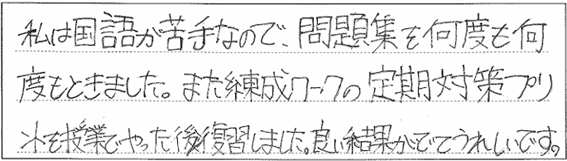 私は国語が苦手なので、問題集を何度も何
度もときました。また練成ワークの定期対策プリ
ントを授業でやった後復習しました。良い結果がでてうれしいです。